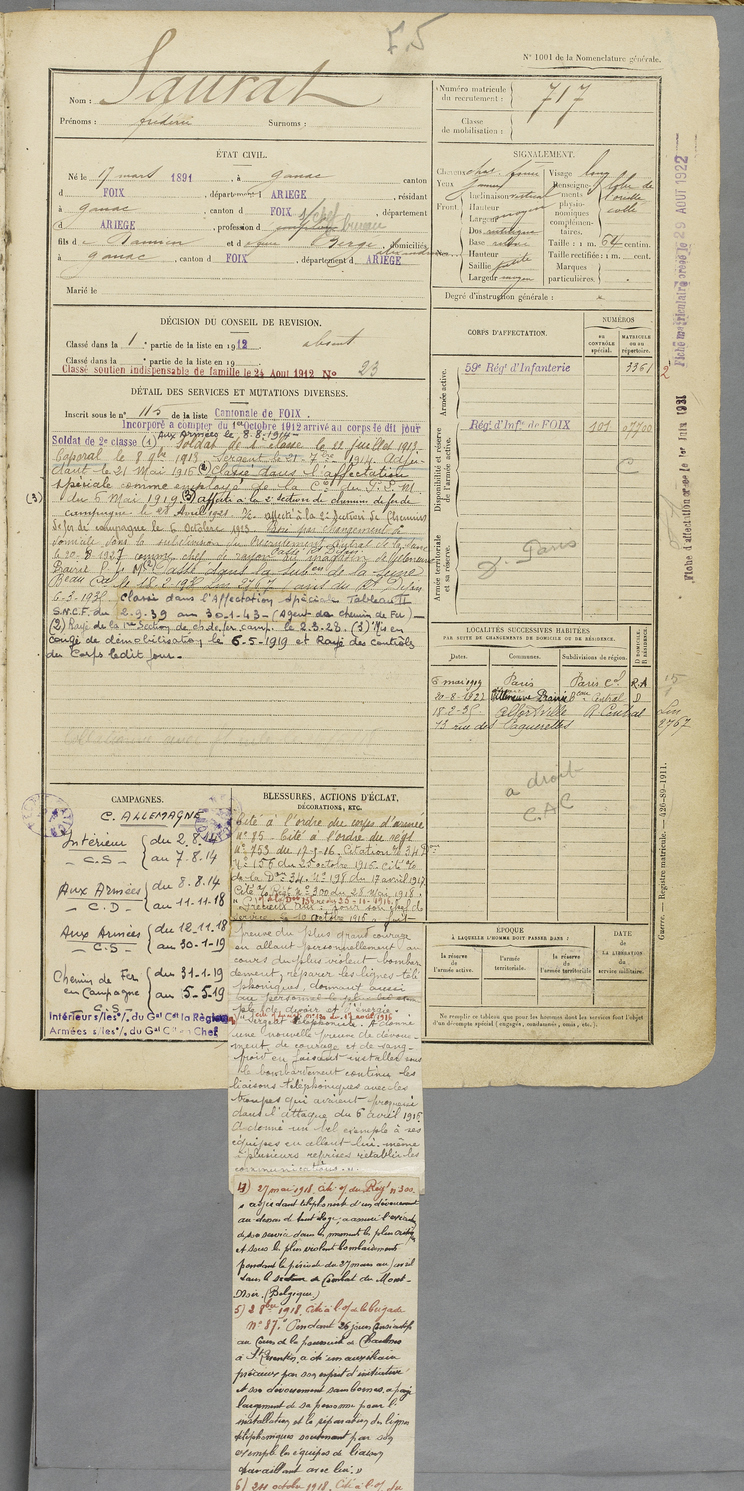 F.5
N° 1001 de la Nomenclature générale.
Nom : Saurat
Prénoms : frédéric Surnoms :
ÉTAT CIVIL.
Né le 17 mars 1891, à ganac canton
d FOIX, département d ARIEGE, résidant
à ganac, canton d FOIX, département
d ARIEGE, profession d chef bureau
fils d e et d e domiciliés
à ganac, canton d FOIX, département d ARIEGE
Marié le
DÉCISION DU CONSEIL DE REVISION.
Classé dans la 1 e partie de la liste en 1912 absent
Classé dans la e partie de la liste en 19
Classé soutien indispensable de famille le 24 Aout 1912 No 23
DÉTAIL DES SERVICES ET MUTATIONS DIVERSES.
Inscrit sous le n° 115 de la liste Cantonale de FOIX.
Incorporé à compter du 1er Octobre 1912 arrivé au corps le dit jour
Soldat de 2e classe (1) Aux Armées le 8-8-1914 Soldat de 1e classe le 12 juillet 1913
Caporal le 8 9bre 1913. Sergent le 21-7bre 1914. Adju-
dant le 21 Mai 1915 (2) Classé dans l'affectation
spéciale comme employé de la Cie du P.L.M.
(3) du 6 Mai 1919 (3) affecté à la 2e section de chemin de fer de
campagne le 28 Avril 1921. affecté à la 2e Section de Chemins
de fer de campagne le 6 Octobre 1923. Rayé par changement de
domicile dans la subdivision du Recrutement Central de la Seine
le 20-8-1927 comme chef de rayon au magasin de Villeneuve
Prairie P.L.M. Passé dans la Subon de la Seine
Beau Cal le 18-2-1935 Lin 2767
6-3-1935 Classé dans l'Affectation Spéciale Tableau II
S.N.C.F. du 2-9-39 au 30-1-43 - (Agent de chemin de Fer) -
(2) Rayé de la 1re Section de ch. de fer camp. le 2.3.23. (3) Mis en
congé de démobilisation le 6-5-1919 et Rayé des contrôles
du Corps ledit jour.
CAMPAGNES.
C. ALLEMAGNE
Intérieur du 2.8.14
- C.S - au 7.8.14
Aux Armées du 8.8.14
- C.D - au 11.11.18
Aux Armées du 12.11.18
- C.S - au 30-1-19
Chemin de Fer du 31-1-19
en Campagne au 5-5-19
C.S -
Intérieurs/les°/. du Gal Ct la Région
Armées s/les°/. du Gal Ct en Chef
BLESSURES, ACTIONS D'ÉCLAT,
DÉCORATIONS, ETC.
Cité à l'ordre du corps d'armée
N° 85. Cité à l'ordre du régt
N° 753 du 17-9-16. Citation 34 Don
N° 156 du 25 octobre 1916. Cité
de la Don 34. N° 198 du 17 avril 1917
Cité Regt N° 300 du 28 Mai 1918.
service le 10 octobre 1916 a fait
preuve du plus grand courage
en allant personnellement au
cours du plus violent bombar
dement, réparer les lignes télé
phoniques, donnant aussi
au personnel le plus bel exem
ple de devoir et d'énergie.
Sergent téléphoniste. A donné
une nouvelle preuve de dévoue
ment de courage et de sang-
froid en faisant installer sous
le bombardement continu les
liaisons téléphoniques avec les
troupes qui avaient progressé
dans l'attaque du 6 avril 1915
A donné un bel exemple à ses
équipes en allant lui-même
à plusieurs reprises rétablir les
communications. "
4) 27 mai 1918. Cité o/ du Régt n° 300.
" adjudant téléphoniste d'un dévouement
au-dessus de tout éloge; a assuré l'exécution
de son service dans les moments les plus critiques
et sous le plus violent bombardement
pendant la période du 27 mars au avril
dans le secteur de Combat du Mont-
Noir. (Belgique)
5) 2 8bre 1918. Cité à l'o/ de la brigade
N° 87. " Pendant 26 jours consécutifs
au Cours de la poursuite de Chaulnes
à St Quentin, a été un auxiliaire
précieux par son esprit d'initiative
et son dévouement sans bornes, a payé
largement de sa personne pour l'
installation et la réparation des lignes
téléphoniques soutenant par son
exemple les équipes de liaison
travaillant avec lui. »
6) 24 octobre 1918. Cité à l'o/ du
Numéro matricule du recrutement : 717
Classe de mobilisation :
SIGNALEMENT.
Cheveux chat. foncé Visage long
Yeux jaunes
Front Inclinaison vertical
Hauteur moyen
Largeur
Nez Dos rectiligne
Base
Hauteur
Saillie petite
Largeur moyen
Renseignements physionomiques complémentaires. lobe de l'oreille collé
Taille : 1 m. 64 centim.
Taille rectifiée : 1 m. cent.
Marques particulières.
Degré d'instruction générale :
CORPS D'AFFECTATION.
NUMÉROS
DU CONTRÔLE spécial.
MATRICULE OU AU répertoire.
Armée active.
59e Régt d'Infanterie 3361
Disponibilité et réserve de l'armée active.
Régt d'Infie de FOIX 101 07700
C
Armée territoriale et sa réserve.
D. Paris
LOCALITÉS SUCCESSIVES HABITÉES
PAR SUITE DE CHANGEMENTS DE DOMICILE OU DE RÉSIDENCE.
Dates. Communes. Subdivisions de région. D DOMICILE. R RÉSIDENCE.
6 mai 1919 Paris Paris Cal R.A
20-8-1927 Villeneuve Prairie Central D
18-2-35 Alfortville R Central Lin
13 rue des Paquerettes 2767
a droit
C.A.C
EPOQUE
À LAQUELLE L'HOMME DOIT PASSER DANS :
la réserve de l'armée active.
l'armée territoriale.
la réserve de l'armée territoriale
DATE de LA LIBÉRATION du service militaire.
Ne remplir ce tableau que pour les hommes dont les services font l'objet
d'un décompte spécial (engagés, condamnés, omis, etc.).
Fiche matriculaire le 29 AOUT 1922
Fiche d'affectation le 1er Juin 1921
Guerre. — Registre matricule. — 426-89-1911.